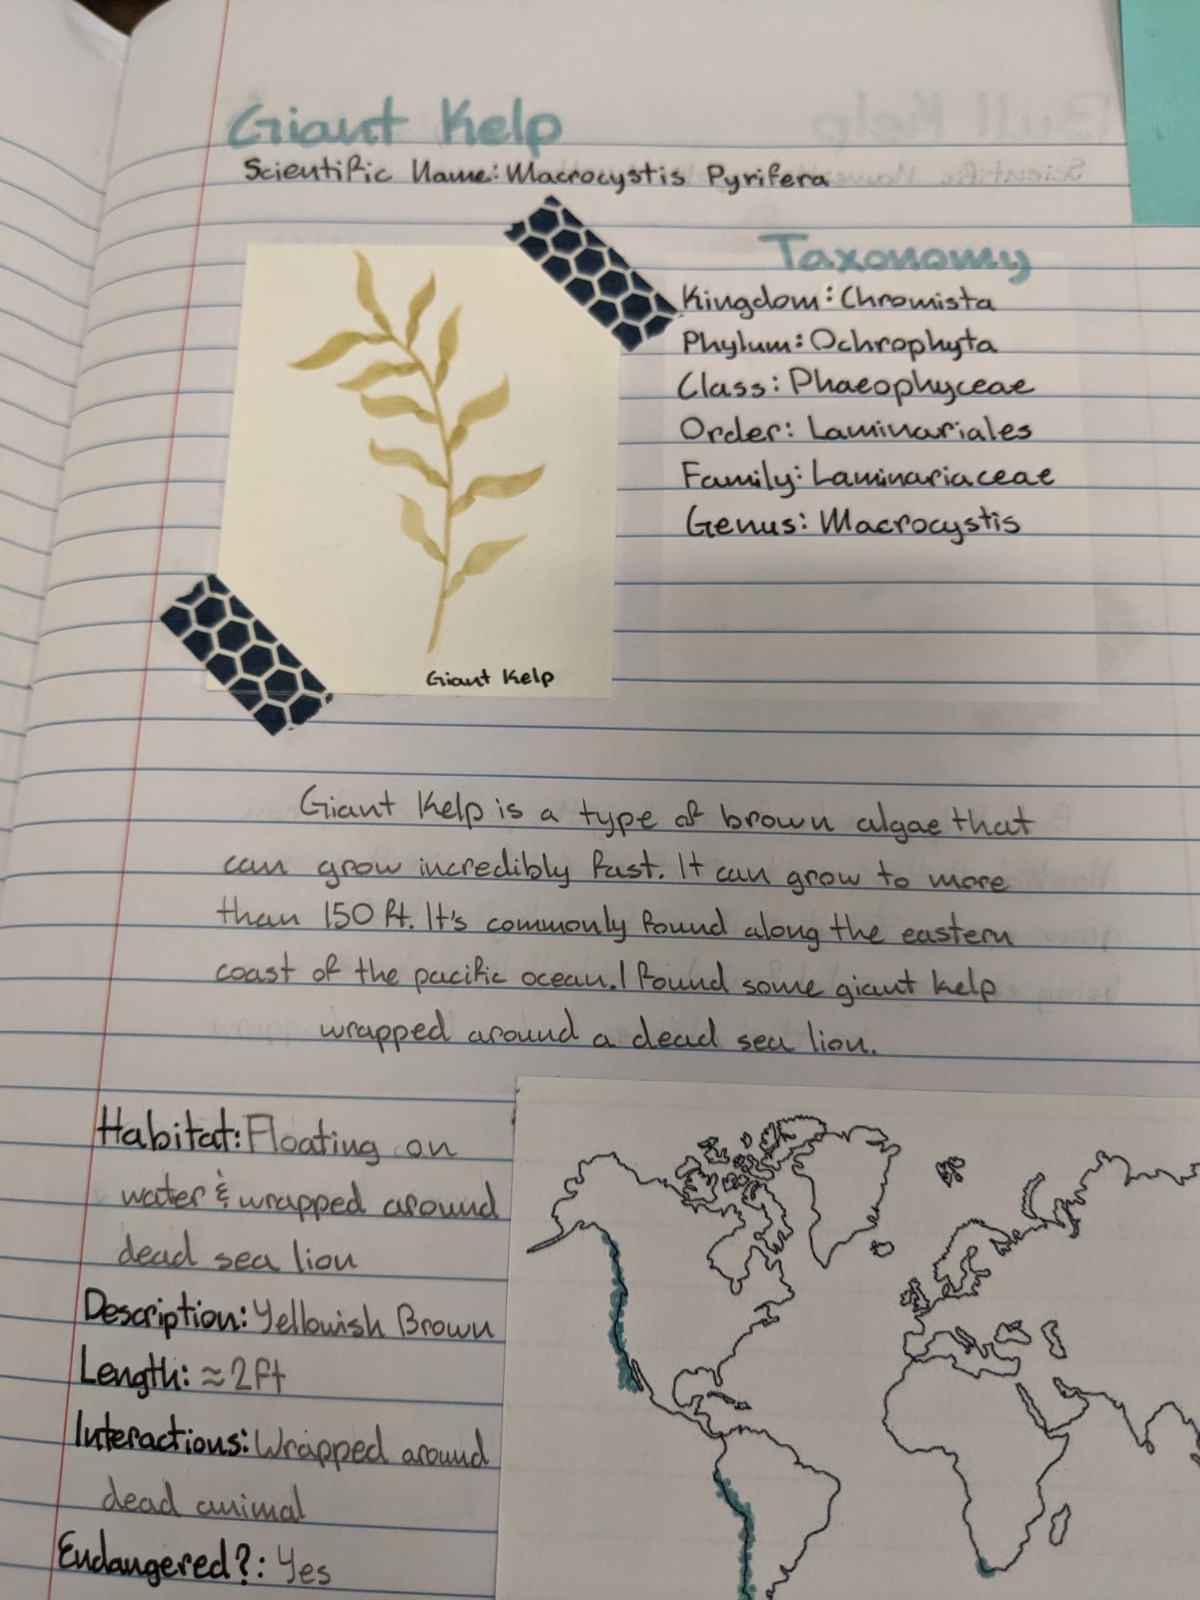 Giant Kelp
Scientific Name: Macrocystis Pyrifera
Giant Kelp
Taxonomy
Kingdom: Chromista
Phylum: Ochrophyta
Class: Phaeophyceae
Order: Laminariales
Family: Laminariaceae
Genus: Macrocystis
Giant Kelp is a type of brown algae that
can grow incredibly fast. It can grow to more
than 150 ft. It's commonly found along the eastern
coast of the pacific ocean. I found some giant kelp
wrapped around a dead sea lion.
Habitat: Floating on
water & wrapped around
dead sea lion
Description: Yellowish Brown
Length: ≈2ft
Interactions: Wrapped around
dead animal
Endangered?: Yes